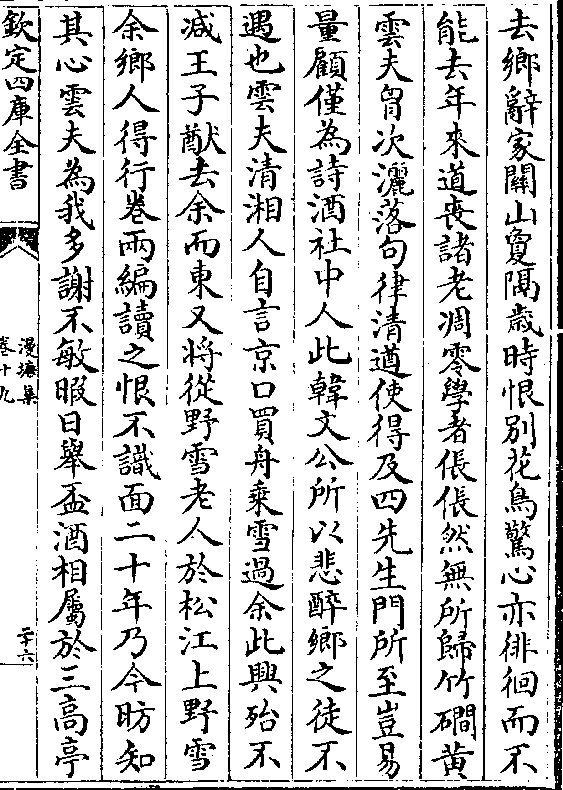 去鄉辭家關山敻隔歲時恨别花鳥驚心亦徘徊而不
能去年來道喪諸老凋零學者倀倀然無所歸竹磵黄
雲夫胷次灑落句律清遒使得及四先生門所至豈易
量顧僅為詩酒社中人此韓文公所以悲醉鄉之徒不
遇也雲夫清湘人自言京口買舟乘雪過余此興殆不
减王子猷去余而東又將從野雪老人於松江上野雪
余鄉人得行卷兩編讀之恨不識面二十年乃今昉知
其心雲夫為我多謝不敏暇日舉盃酒相屬於三高亭
欽定四庫全書
漫塘集
卷十九
二十六